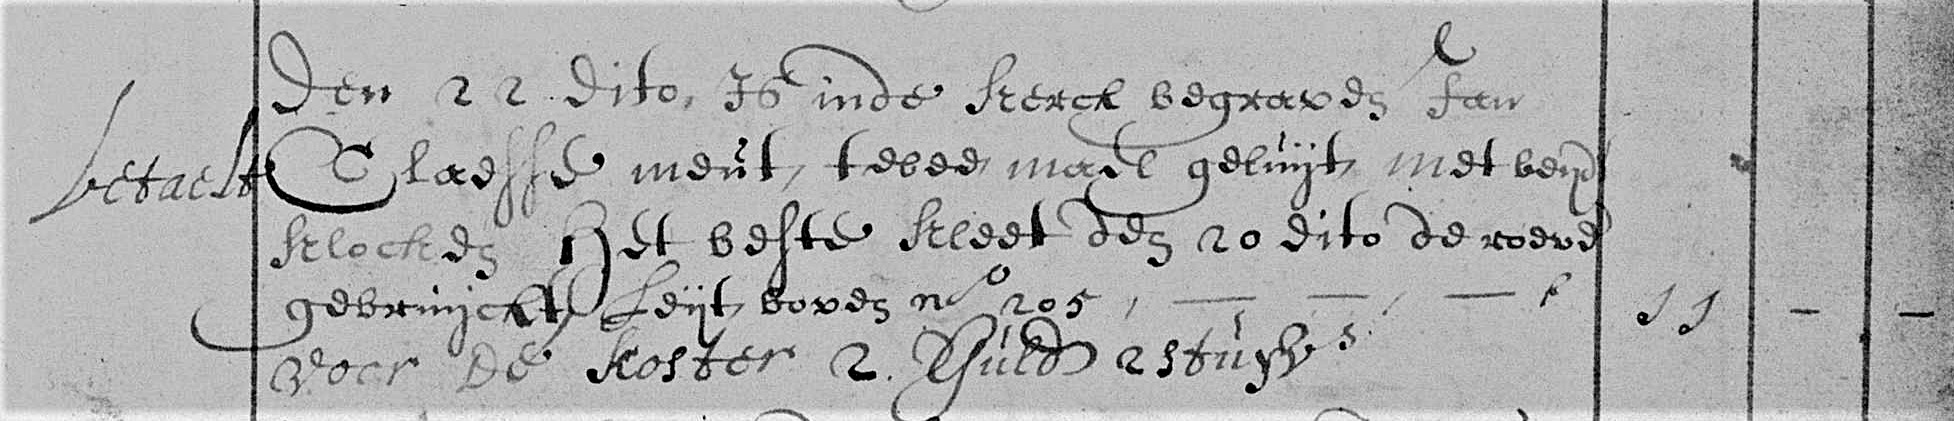 Den 22 dito, Is inde kerck begraven Jan
betaelt Claesse meut, twee mael geluijt met beijd
klocken Het beste kleet den 20 dito de roeve
gebruijckt, Leijt boven no 205, — — — f 11 - -
Voor de koster 2. Guld 2 stuyvs